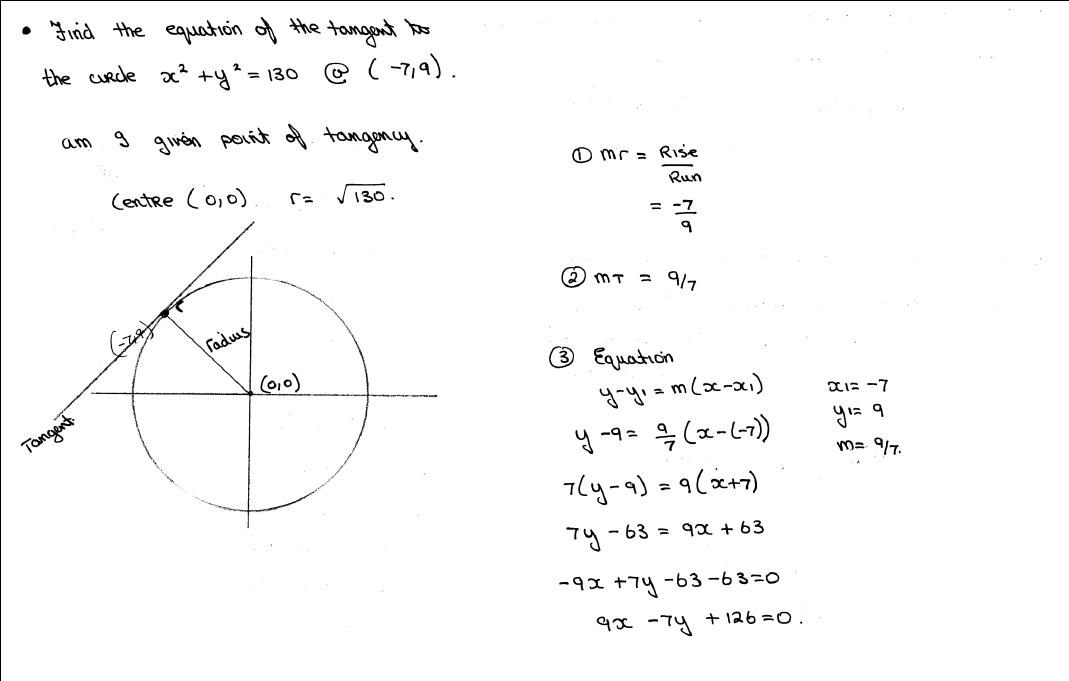 • Find the equation of the tangent to
the circle x² + y² = 130 @ (-7,9).
am I given point of tangency.
Centre (0,0) r = √130.
(-7,9)
radius
(0,0)
Tangent.
① mr = Rise
Run
= -7
9
② mT = 9/7
③ Equation
y-y1 = m(x-x1) x1= -7
y1= 9
y -9 = 9/7 (x-(-7)) m= 9/7.
7(y-9) = 9(x+7)
7y - 63 = 9x + 63
-9x +7y -63 -63=0
9x -7y +126=0.